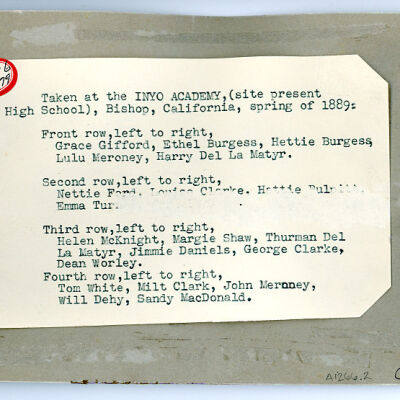 Taken at the INYO ACADEMY,(site present
High School), Bishop, California, spring of 1889:
Front row,left to right,
Grace Gifford, Ethel Burgess, Hettie Burgess,
Lulu Meroney, Harry Del La Matyr.
Second row,left to right,
Nettie Ford, Louise Clarke. Hattie
Emma
Third row,left to right,
Helen McKnight, Margie Shaw, Thurman Del
La Matyr, Jimmie Daniels, George Clarke,
Dean Worley.
Fourth row,left to right,
Tom White, Milt Clark, John Meroney,
Will Dehy, Sandy MacDonald.
A1266.2